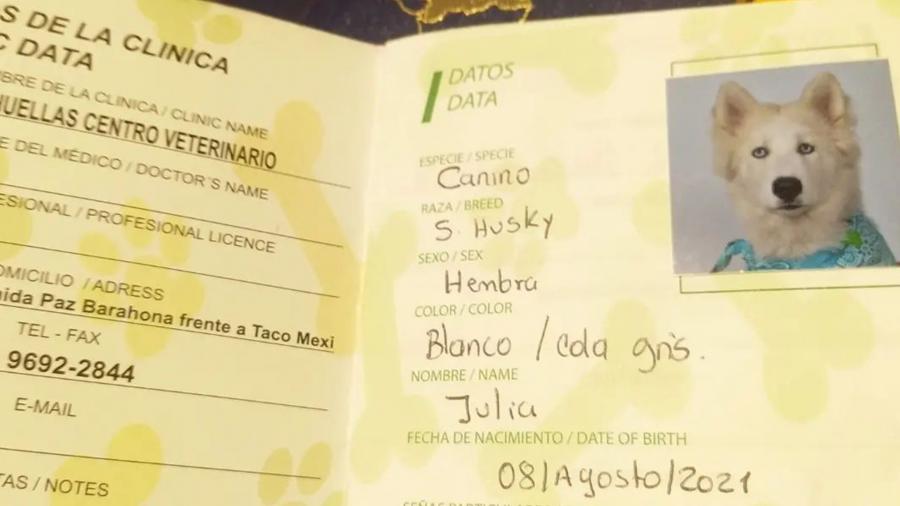 S DE LA CLINICA
C DATA
BRE DE LA CLINICA / CLINIC NAME
HUELLAS CENTRO VETERINARIO
E DEL MÉDICO / DOCTOR´S NAME
ESIONAL / PROFESIONAL LICENCE
OMICILIO / ADRESS
nida Paz Barahona frente a Taco Mexi
TEL - FAX
9692-2844
E-MAIL
TAS / NOTES
DATOS
DATA
ESPECIE / SPECIE
Canino
RAZA / BREED
S. Husky
SEXO / SEX
Hembra
COLOR / COLOR
Blanco / Cola gris.
NOMBRE / NAME
Julia
FECHA DE NACIMIENTO / DATE OF BIRTH
08/Agosto/2021